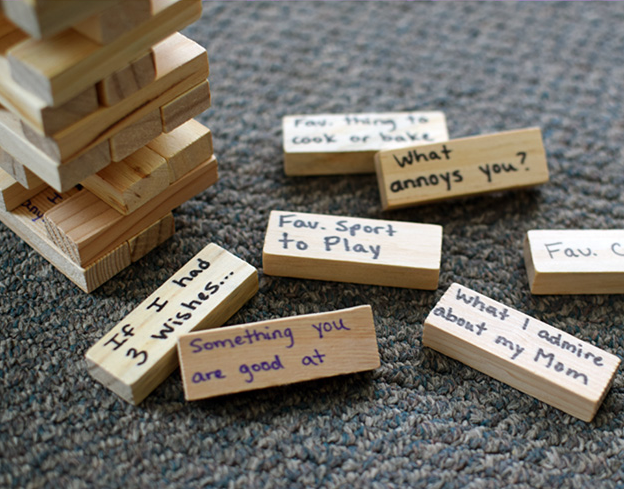 Fav. thing to
cook or bake
What
annoys you?
Fav. Sport
to Play
Fav. C
If I had
3 wishes...
Something you
are good at
What I admire
about my Mom